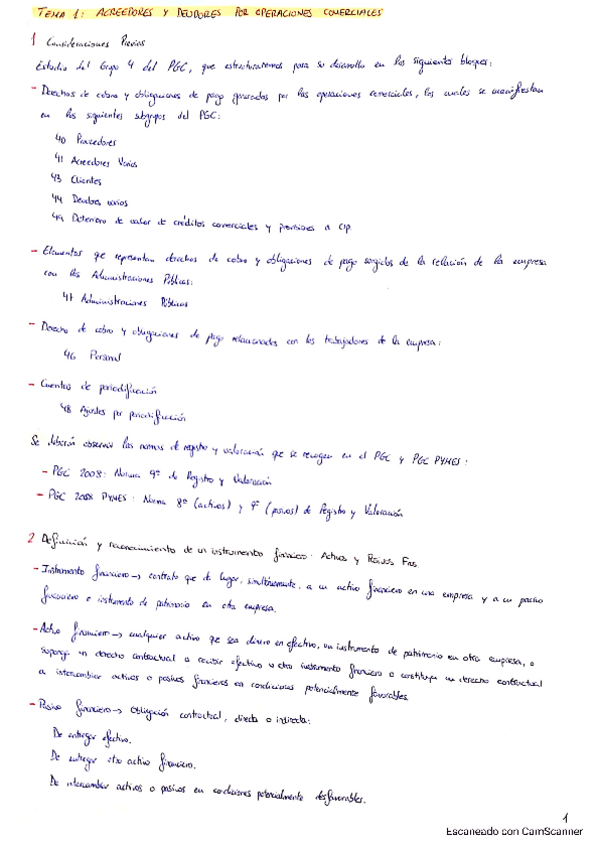 TEMA 1: ACREEDORES Y DEUDORES POR OPERACIONES COMERCIALES
1 Consideraciones Previas
Estudio del Grupo 4 del PGC, que estructuraremos para su desarrollo en los siguientes bloques:
- Derechos de cobro y obligaciones de pago generados por las operaciones comerciales, los cuales se manifiestan
en los siguientes subgrupos del PGC:
40 Proveedores
41 Acreedores Varios
43 Clientes
44 Deudores varios
49 Deterioro de valor de créditos comerciales y provisiones a C/P.
- Elementos que representan derechos de cobro y obligaciones de pago surgidos de la relación de la empresa
con las Administraciones Públicas:
47 Administraciones Públicas
- Derecho de cobro y obligaciones de pago relacionados con los trabajadores de la empresa:
46 Personal
- Cuentas de periodificación
48 Ajustes por periodificación
Se deberán observar las normas de registro y valoración que se recogen en el PGC y PGC PYMES:
- PGC 2008: Norma 9ª de Registro y Valoración
- PGC 2008 PYMES: Norma 8ª (activos) y 9ª (pasivos) de Registro y Valoración
2 Definición y reconocimiento de un instrumento financiero: Activos y Pasivos Fros.
- Instrumento financiero → contrato que da lugar, simultáneamente, a un activo financiero en una empresa y a un pasivo
financiero o instrumento de patrimonio en otra empresa.
- Activo financiero → cualquier activo que sea dinero en efectivo, un instrumento de patrimonio en otra empresa, o
suponga un derecho contractual a recibir efectivo u otro instrumento financiero o constituya un derecho contractual
a intercambiar activos o pasivos financieros en condiciones potencialmente favorables.
- Pasivo financiero → Obligación contractual, directa o indirecta:
De entregar efectivo.
De entregar otro activo financiero.
De intercambiar activos o pasivos en condiciones potencialmente desfavorables.
1
Escaneado con CamScanner